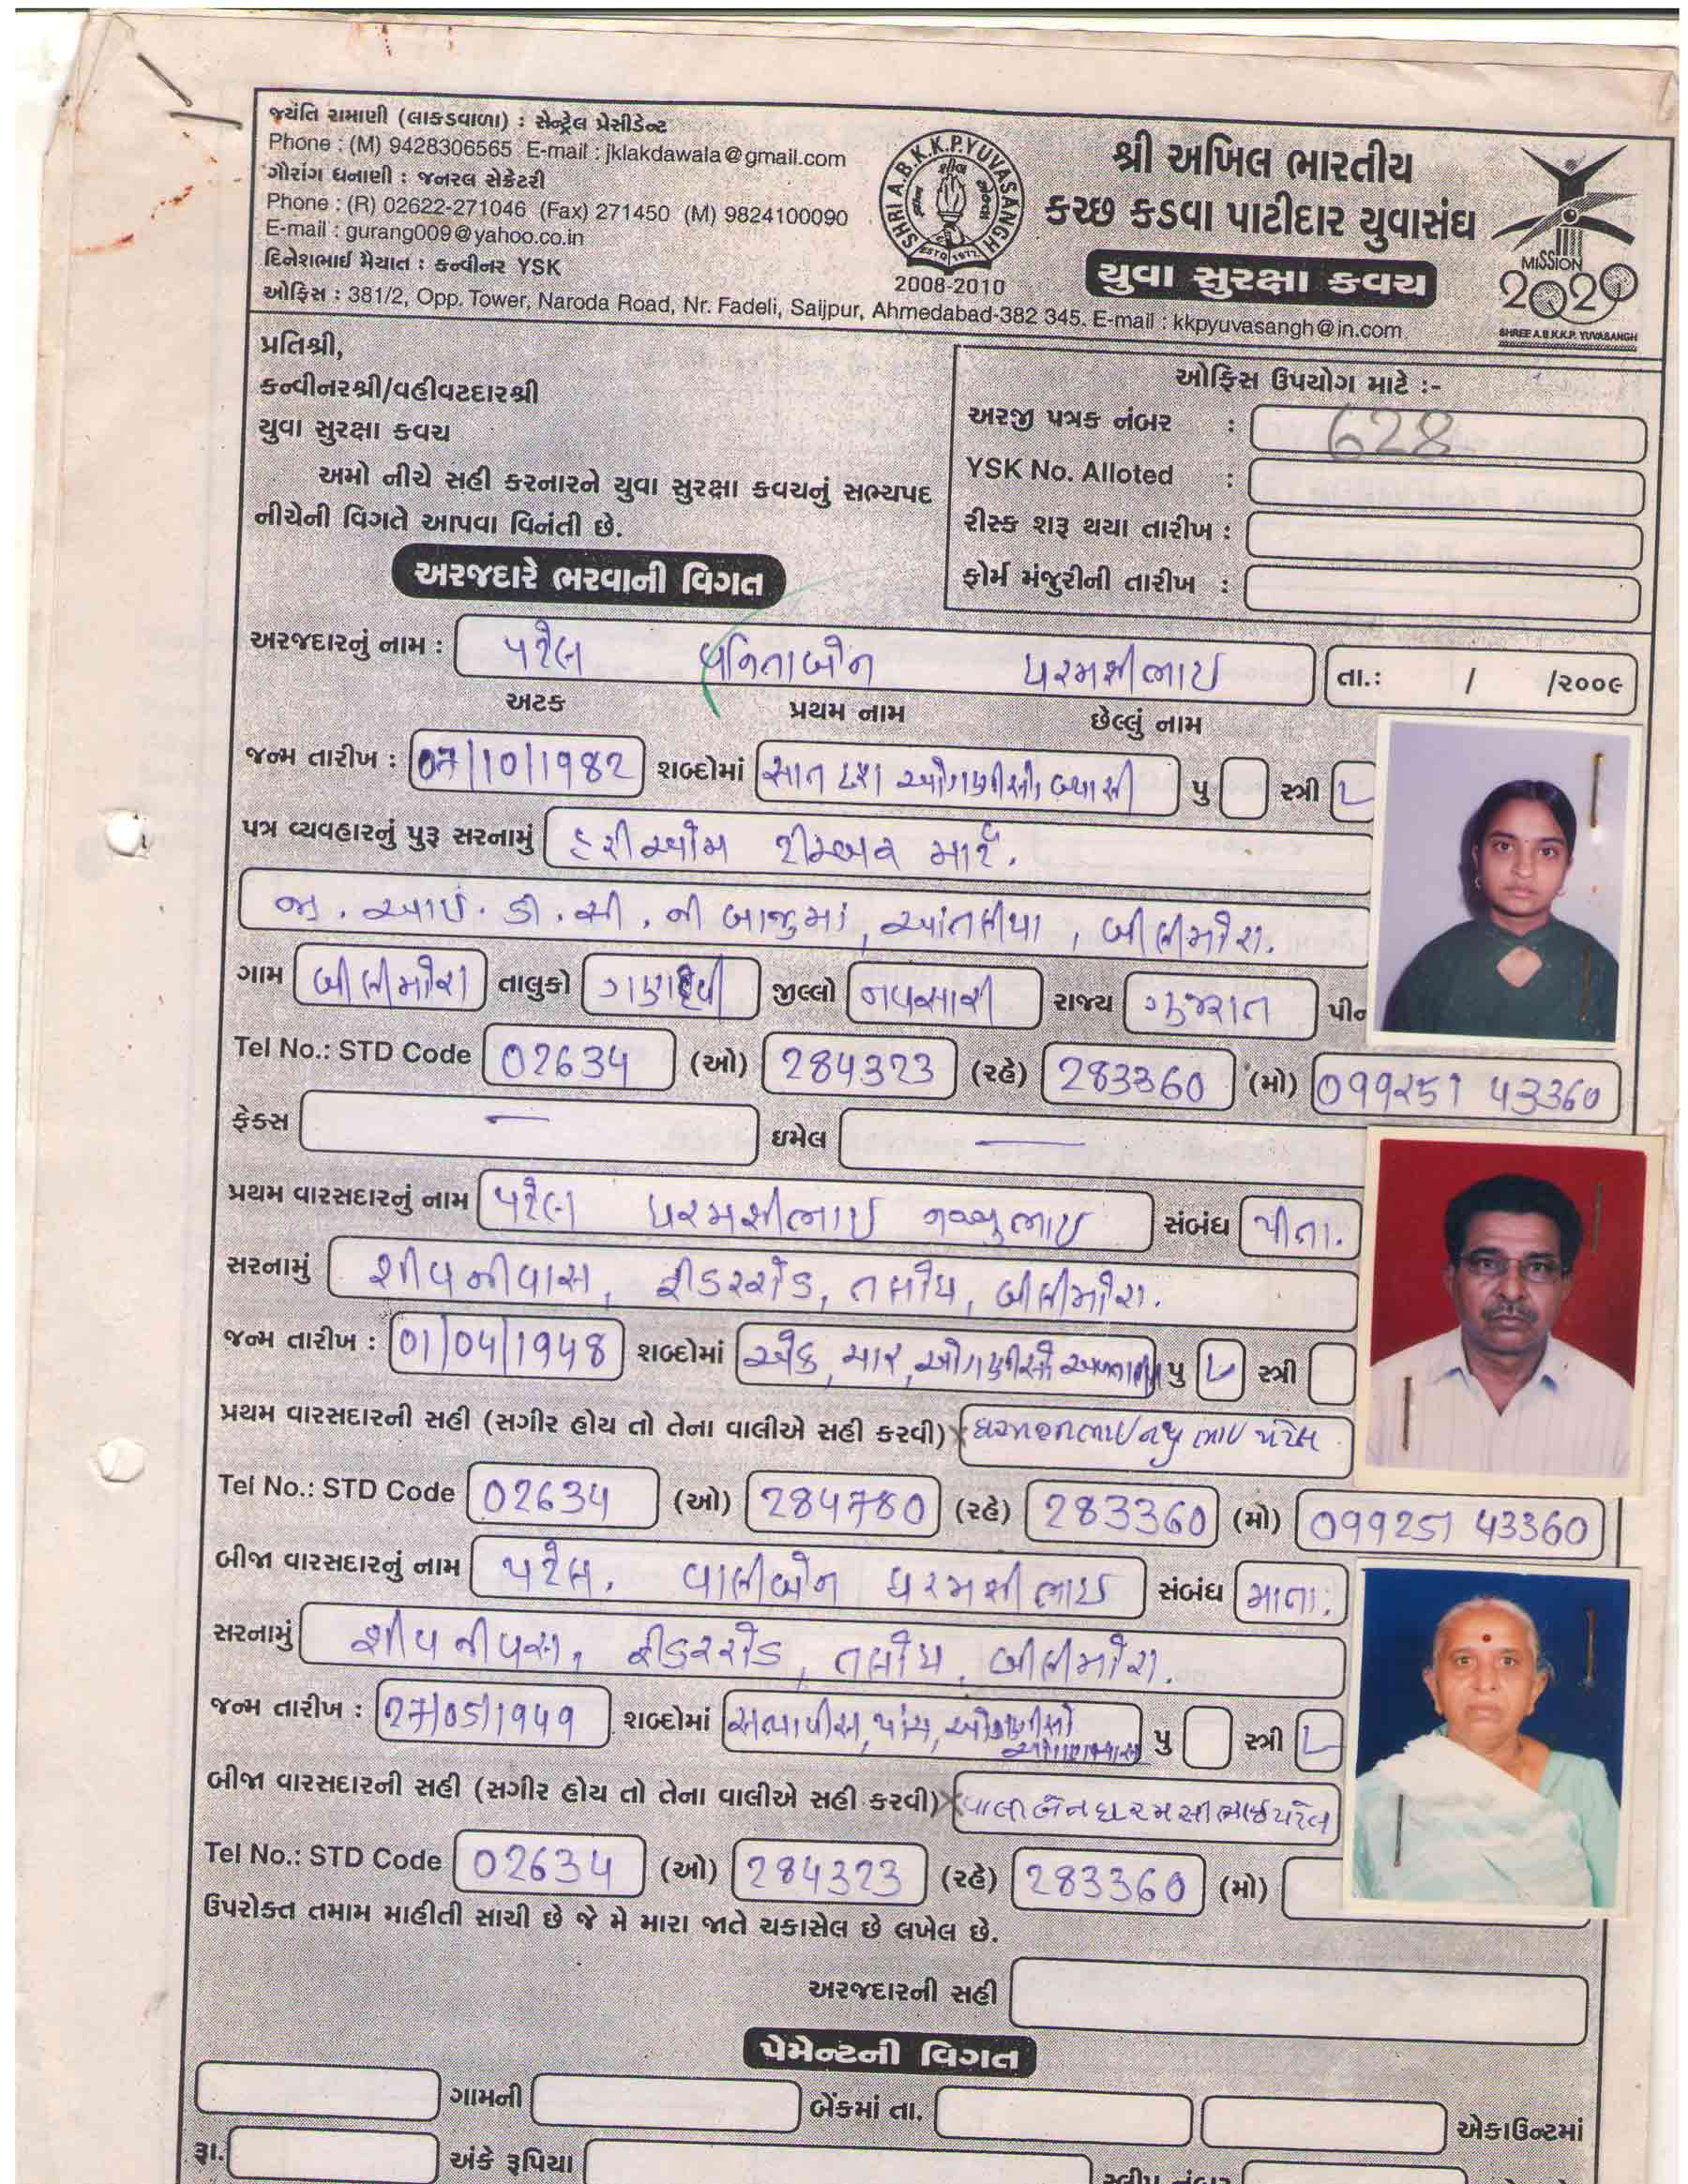 જયંતિ રામાણી (લાકડાવાળા) : સેન્ટ્રેલ પ્રેસીડેન્ટ
Phone : (M) 9428306565 E-mail : jklakdawala@gmail.com
ગૌરાંગ ધનાણી : જનરલ સેક્રેટરી
Phone : (R) 02622-271046 (Fax) 271450 (M) 9824100090
E-mail : gurang009@yahoo.co.in
દિનેશભાઈ મૈયાત : કન્વીનર YSK
ઓફિસ : 381/2, Opp. Tower, Naroda Road, Nr. Fadeli, Saijpur, Ahmedabad-382 345. E-mail : kkpyuvasangh@in.com
SHRI A.B.K.K.P. YUVASANGH
ESTD 1977
2008-2010
શ્રી અખિલ ભારતીય
કચ્છ કડવા પાટીદાર યુવાસંઘ
યુવા સુરક્ષા કવચ
MISSION
2020
SHREE A.B.K.K.P. YUVASANGH
પ્રતિશ્રી,
કન્વીનરશ્રી/વહીવટદારશ્રી
યુવા સુરક્ષા કવચ
અમો નીચે સહી કરનારને યુવા સુરક્ષા કવચનું સભ્યપદ
નીચેની વિગતે આપવા વિનંતી છે.
ઓફિસ ઉપયોગ માટે :-
અરજી પત્રક નંબર : 628
YSK No. Alloted :
રીસ્ક શરૂ થયા તારીખ :
ફોર્મ મંજુરીની તારીખ :
અરજદારે ભરવાની વિગત
અરજદારનું નામ : પટેલ વનિતાબેન ધરમશીભાઈ તા.: / /૨૦૦૯
અટક પ્રથમ નામ છેલ્લું નામ
જન્મ તારીખ : 07/10/1982 શબ્દોમાં સાત દશ ઓગણીસો બ્યાસી પુ સ્ત્રી
પત્ર વ્યવહારનું પુરૂ સરનામું હરીઓમ ટીમ્બર માર્ટ.
જી. આઈ. ડી. સી. ની બાજુમાં, આંતલીયા, બીલીમોરા.
ગામ બીલીમોરા તાલુકો ગણદેવી જીલ્લો નવસારી રાજ્ય ગુજરાત પીન
Tel No.: STD Code 02634 (ઓ) 284323 (રહે) 283360 (મો) 099251 43360
ફેક્સ — ઇમેલ —
પ્રથમ વારસદારનું નામ પટેલ ધરમશીભાઈ નથ્થુભાઈ સંબંધ પીતા.
સરનામું શીવનીવાસ, ફીડરરોડ, તલોધ, બીલીમોરા.
જન્મ તારીખ : 01/04/1948 શબ્દોમાં એક, ચાર, ઓગણીસો પુ સ્ત્રી
પ્રથમ વારસદારની સહી (સગીર હોય તો તેના વાલીએ સહી કરવી) નથુભાઈ પટેલ
Tel No.: STD Code 02634 (ઓ) 284780 (રહે) 283360 (મો) 099251 43360
બીજા વારસદારનું નામ પટેલ. વાલીબેન ધરમશીભાઈ સંબંધ માતા.
સરનામું શીવનીવાસ, ફીડરરોડ, તલોધ, બીલીમોરા.
જન્મ તારીખ : 27/05/1949 શબ્દોમાં સત્યાવીસ, પાંચ, ઓગણીસો પુ સ્ત્રી
બીજા વારસદારની સહી (સગીર હોય તો તેના વાલીએ સહી કરવી) વાલીબેન ધરમસીભાઈ પટેલ
Tel No.: STD Code 02634 (ઓ) 284323 (રહે) 283360 (મો)
ઉપરોક્ત તમામ માહીતી સાચી છે જે મે મારા જાતે ચકાસેલ છે લખેલ છે.
અરજદારની સહી
પેમેન્ટની વિગત
ગામની બેંકમાં તા. એકાઉન્ટમાં
રૂા. અંકે રૂપિયા